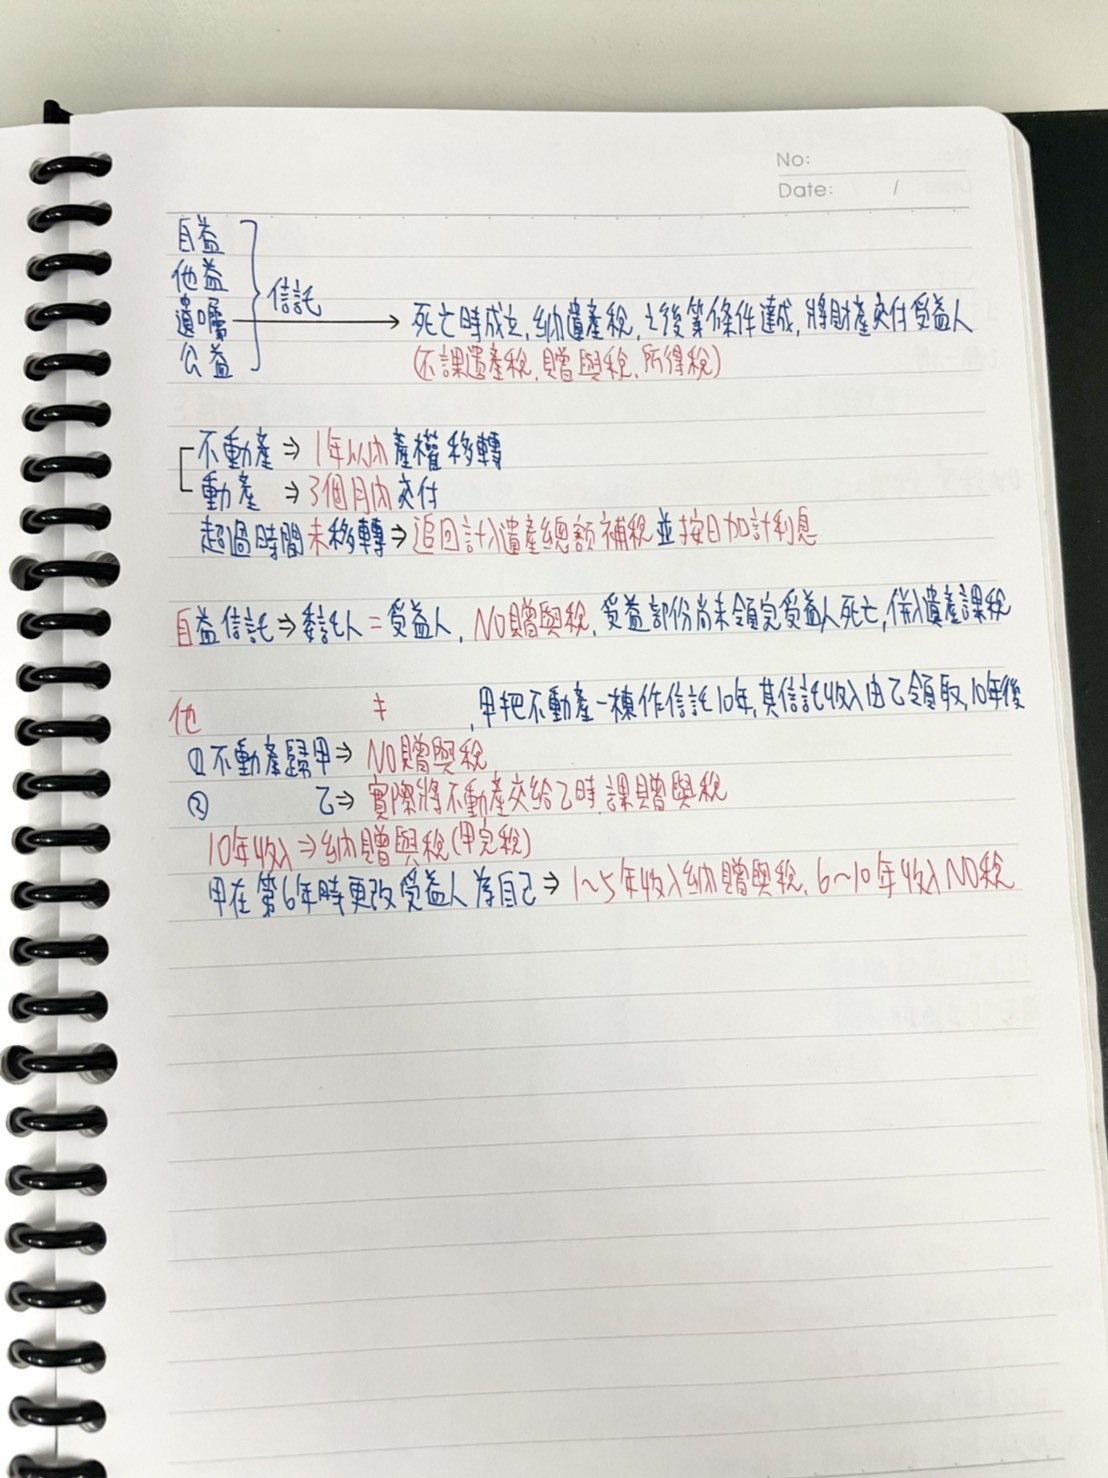 No:
Date: /
自益
他益
遺囑
公益
信託
死亡時成立,納遺產稅,之後等條件達成,將財產交付受益人
(不課遺產稅,贈與稅,所得稅)
不動產⇒1年以內產權移轉
動產⇒3個月內交付
超過時間未移轉⇒追回計入遺產總額補稅並按日加計利息
自益信託⇒委託人=受益人,NO贈與稅,受益部份尚未領完受益人死亡,併入遺產課稅
他 ≠ ,甲把不動產一棟作信託10年,其信託收入由乙領取,10年後
①不動產歸甲⇒NO贈與稅
② 乙⇒實際將不動產交給乙時,課贈與稅
10年收入⇒納贈與稅(甲完稅)
甲在第6年時更改受益人為自己⇒1~5年收入納贈與稅,6~10年收入NO稅